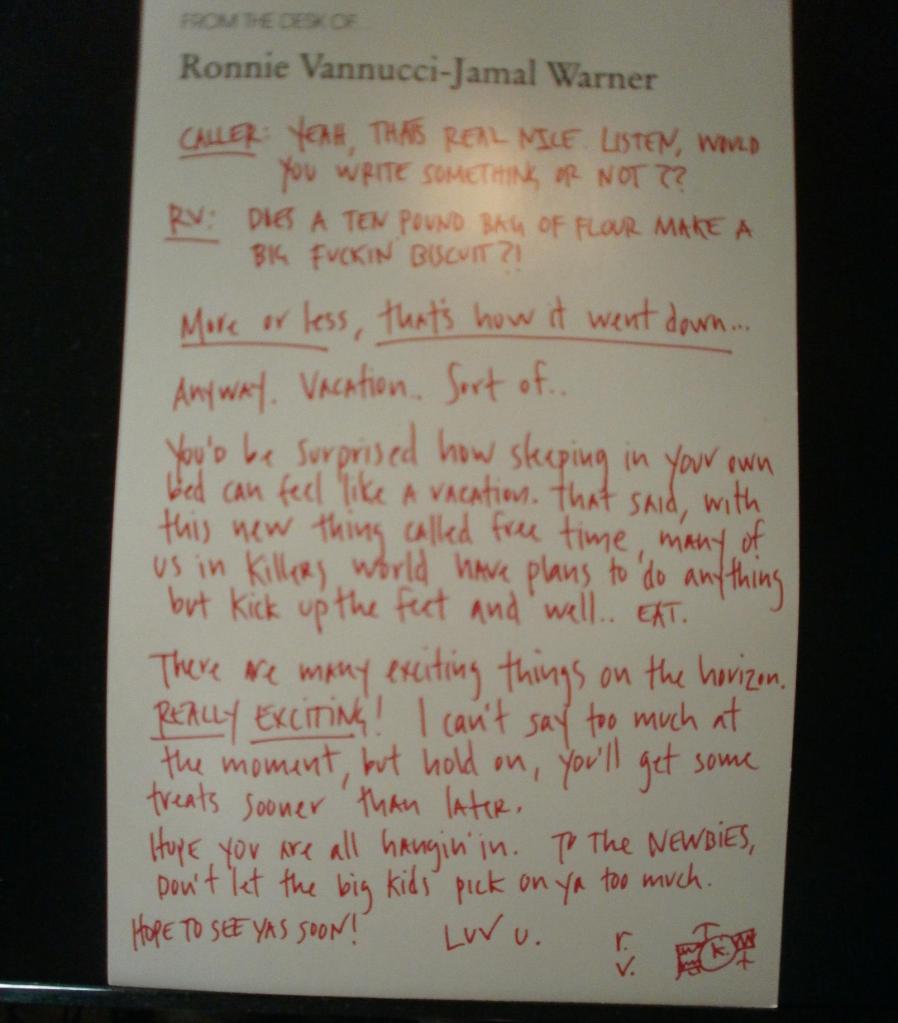 FROM THE DESK OF...
Ronnie Vannucci-Jamal Warner
CALLER: YEAH, THATS REAL NICE. LISTEN, WOULD
YOU WRITE SOMETHING OR NOT??
RV: DOES A TEN POUND BAG OF FLOUR MAKE A
BIG FUCKIN BISCUIT?!
More or less, that's how it went down...
Anyway. Vacation.. Sort of..
You'd be surprised how sleeping in your own
bed can feel like a vacation. That said, with
this new thing called free time, many of
us in Killers world have plans to do anything
but kick up the feet and well.. EAT.
There are many exciting things on the horizon.
REALLY EXCITING! I can't say too much at
the moment, but hold on, you'll get some
treats sooner than later.
Hope you are all hangin' in. To the NEWBIES,
Don't let the big kids pick on ya too much.
HOPE TO SEE YAS SOON! LUV U. r.
v.
K.